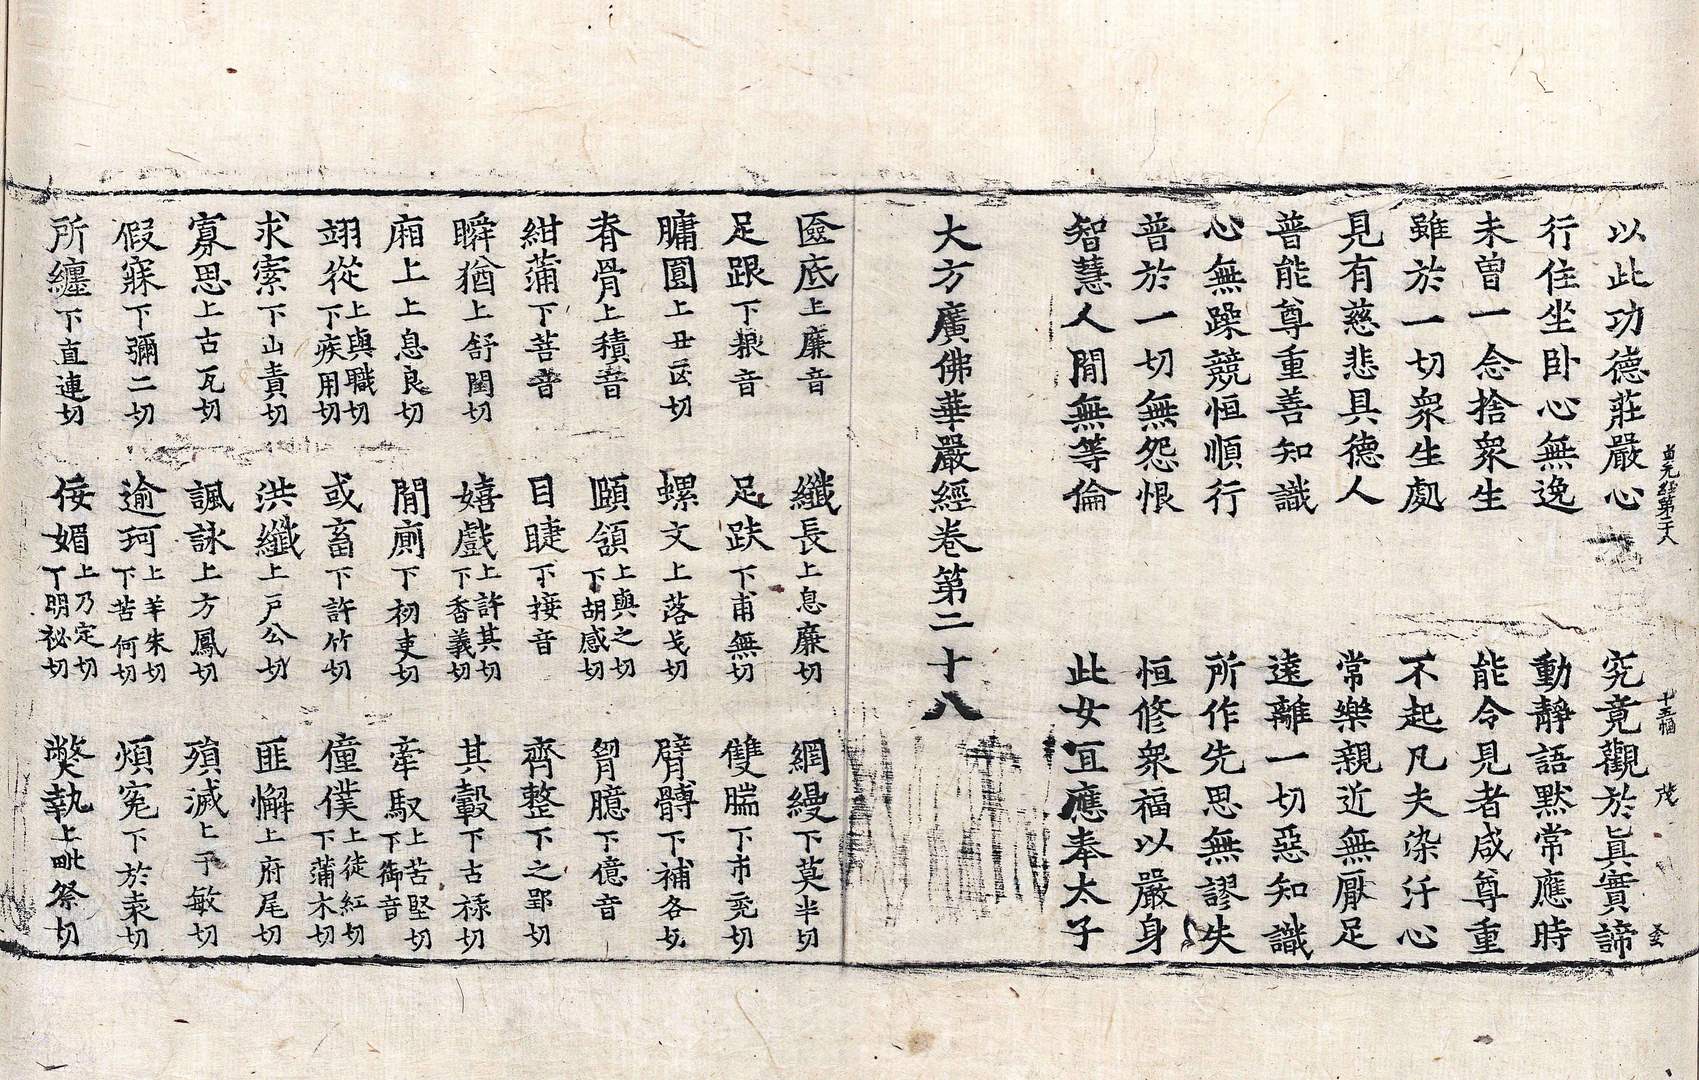 貞元經第二十八 十五幅 茂
以此功德莊嚴心 究竟觀於眞實諦
行住坐臥心無逸 動靜語默常應時
未曾一念捨衆生 能令見者咸尊重
雖於一切衆生處 不起凡夫染汙心
見有慈悲具德人 常樂親近無厭足
普能尊重善知識 遠離一切惡知識
心無躁競恒順行 所作先思無謬失
普於一切無怨恨 恒修衆福以嚴身
智慧人閒無等倫 此女宜應奉太子
大方廣佛華嚴經卷第二十八
匳底上廉音 纖長上息廉切 網縵下莫半切
足跟下根音 足趺下甫無切 雙腨下市兗切
牗圓上丑凶切 螺文上落戈切 臂髆下補各切
脊骨上積音 頤頷上與之切下胡感切 胷臆下億音
紺蒲下菩音 目睫下接音 齊整下之郢切
瞬猶上舒閏切 嬉戲上許其切下香義切 其轂下古祿切
廂上上息良切 閒廁下初吏切 牽馭上苦堅切下御音
翊從上與職切下疾用切 或畜下許竹切 僮僕上徒紅切下蒲木切
求索下山責切 洪纖上戸公切 匪懈上府尾切
寡思上古瓦切 諷詠上方鳳切 殞滅上于敏切
假寐下彌二切 逾珂上羊朱切下苦何切 煩寃下於袁切
所纏下直連切 佞媚上乃定切下明祕切 獘執上毗祭切